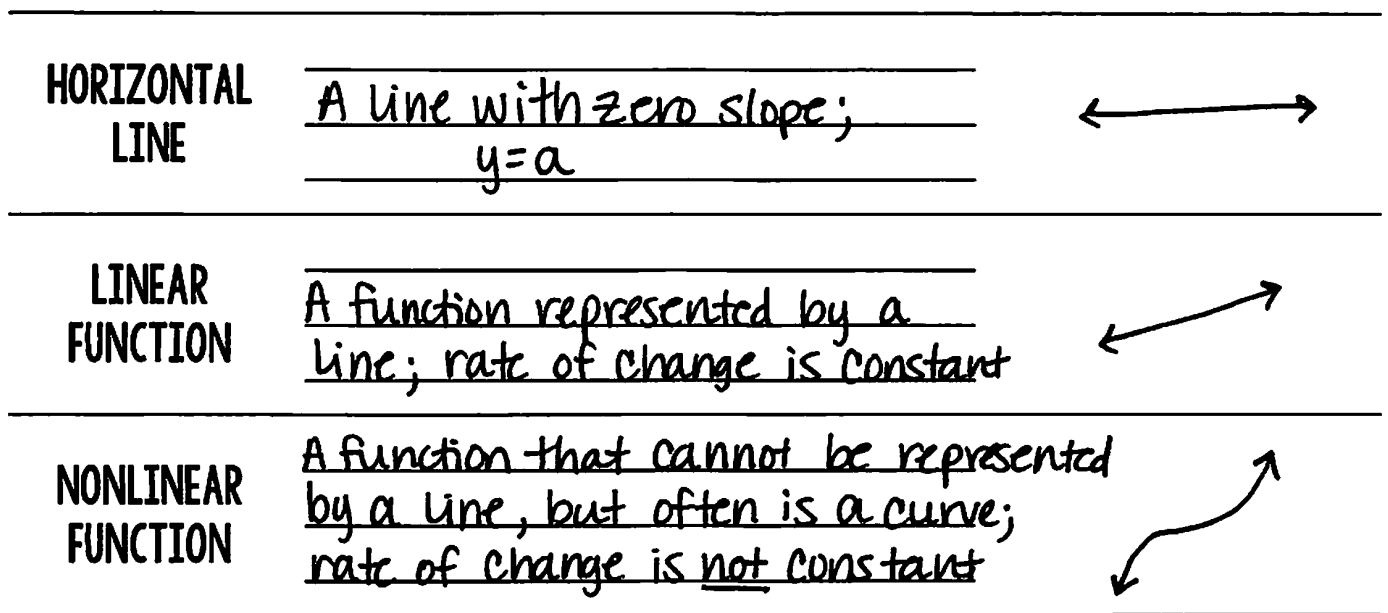 HORIZONTAL
LINE
A line with zero slope;
y=a
LINEAR
FUNCTION
A function represented by a
line; rate of change is constant
NONLINEAR
FUNCTION
A function that cannot be represented
by a line, but often is a curve;
rate of change is not constant